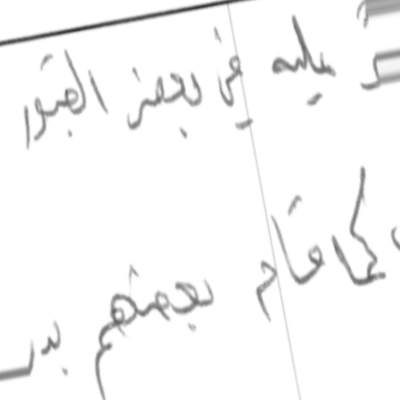 عليه في بعض القبور
كما قام بعضهم بد